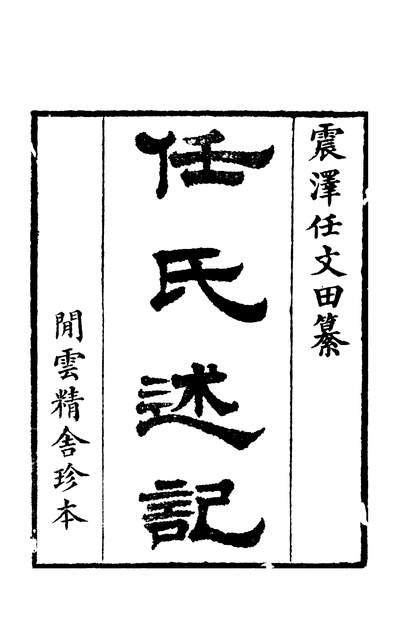 震澤任文田纂
任氏述記
閒雲精舍珍本